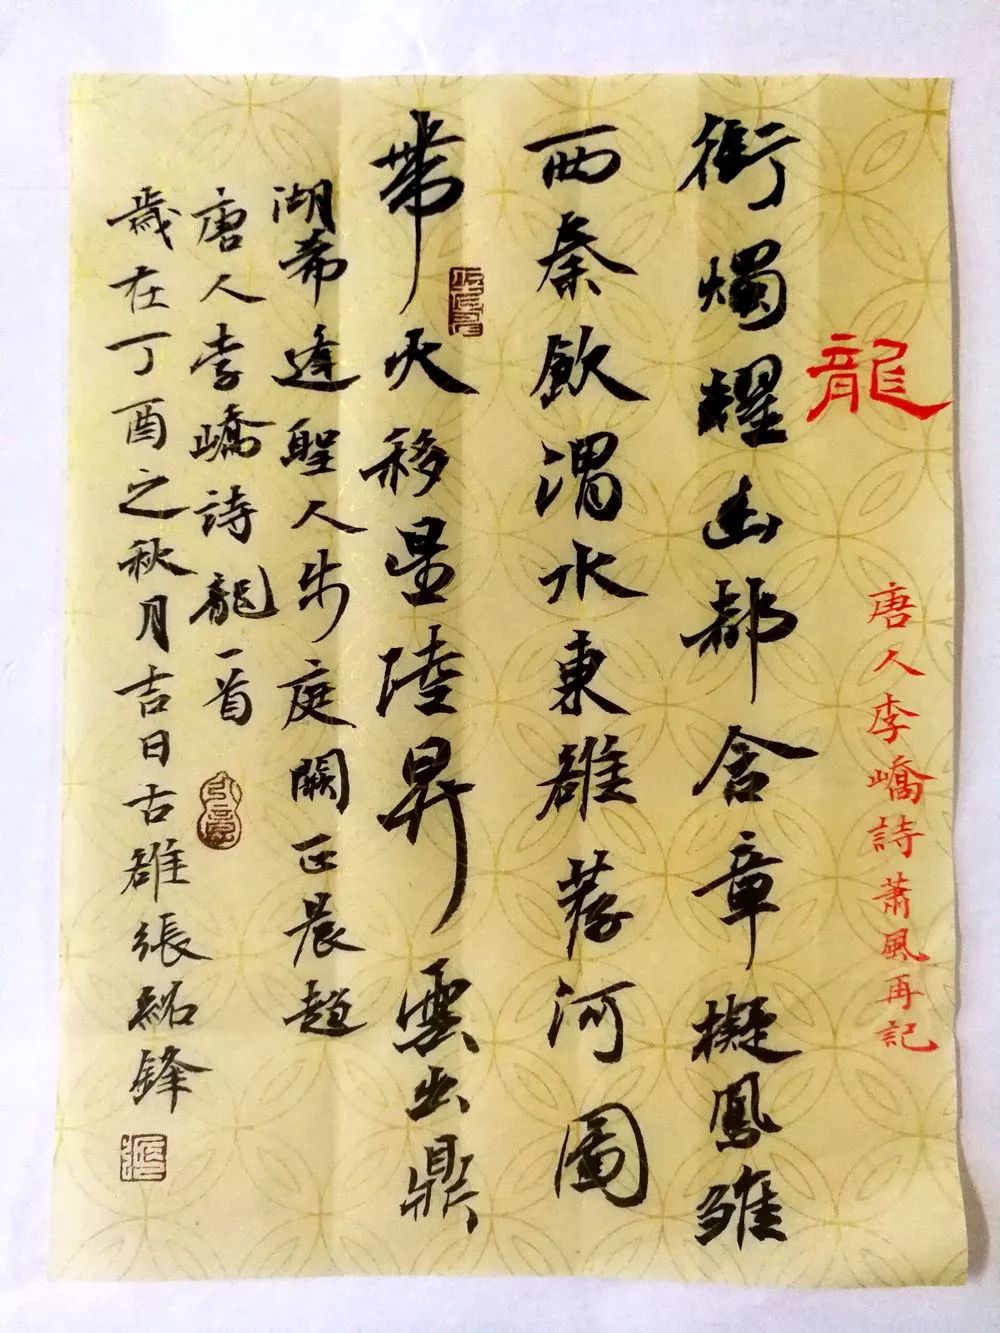 龍
唐人李嶠詩蕭風再記
銜燭耀幽都含章擬鳳雛
西秦飲渭水東雒荐河圖
帶火移星陸昇雲出鼎
湖希逢聖人步庭闕正晨趨
唐人李嶠詩龍一首
歲在丁酉之秋月吉日古雒張紹鋒